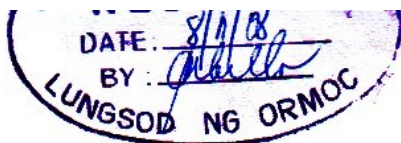 DATE: 8/11/08
BY:
LUNGSOD NG ORMOC